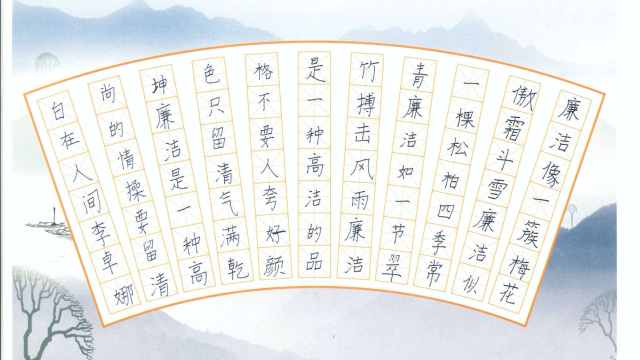 廉洁像一簇梅花
傲霜斗雪廉洁似
一棵松柏四季常
青廉洁如一节翠
竹搏击风雨廉洁
是一种高洁的品
格不要人夸好颜
色只留清气满乾
坤廉洁是一种高
尚的情操要留清
白在人间李卓娜